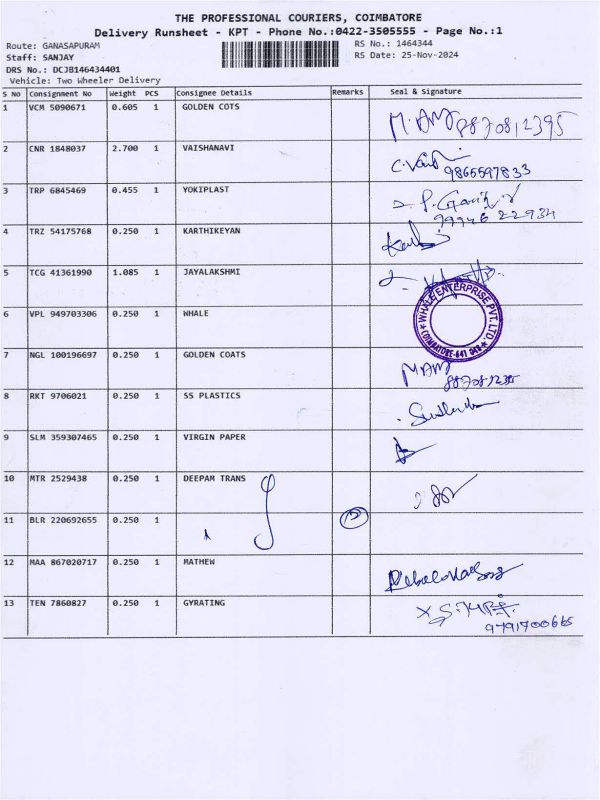 THE PROFESSIONAL COURIERS, COIMBATORE
Delivery Runsheet - KPT - Phone No.:0422-3505555 - Page No.:1
Route: GANASAPURAM RS No.: 1464344
Staff: SANJAY RS Date: 25-Nov-2024
DRS No.: DCJB146434401
Vehicle: Two Wheeler Delivery
S No Consignment No Weight PCS Consignee Details Remarks Seal & Signature
1 VCM 5090671 0.605 1 GOLDEN COTS
8870812395
2 CNR 1848037 2.700 1 VAISHANAVI
9865597833
3 TRP 6845469 0.455 1 YOKIPLAST
79946 22934
4 TRZ 54175768 0.250 1 KARTHIKEYAN
5 TCG 41361990 1.085 1 JAYALAKSHMI
6 VPL 949703306 0.250 1 WHALE
WHALE ENTERPRISE PVT. LTD.
COIMBATORE-641 048
7 NGL 100196697 0.250 1 GOLDEN COATS
8 RKT 9706021 0.250 1 SS PLASTICS
9 SLM 359307465 0.250 1 VIRGIN PAPER
10 MTR 2529438 0.250 1 DEEPAM TRANS
11 BLR 220692655 0.250 1
12 MAA 867020717 0.250 1 MATHEW
13 TEN 7860827 0.250 1 GYRATING
9791700665